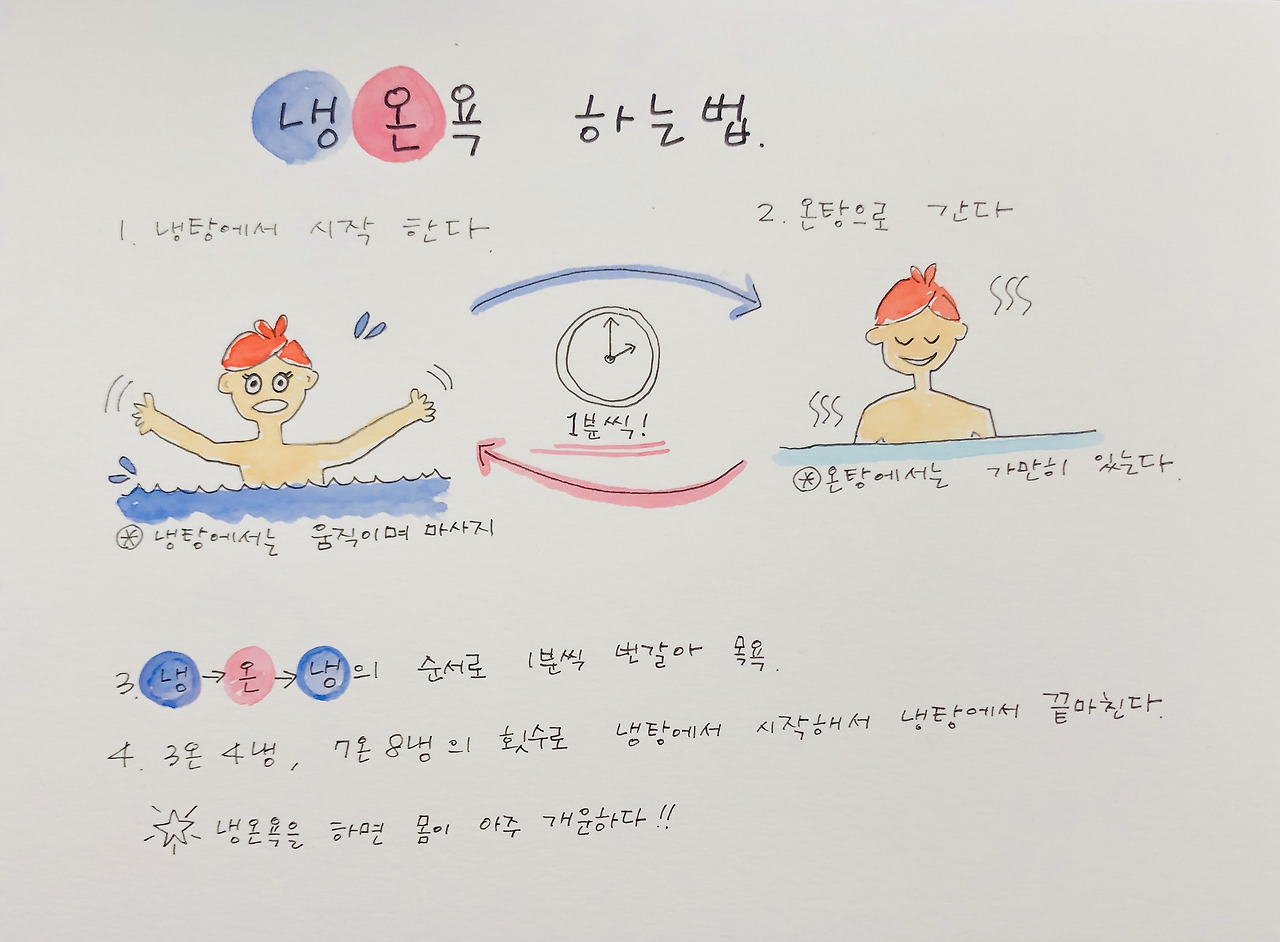 냉온욕 하는법.
1. 냉탕에서 시작 한다.
2. 온탕으로 간다
1분씩!
※ 냉탕에서는 움직이며 마사지
※ 온탕에서는 가만히 있는다.
3. 냉→온→냉의 순서로 1분씩 번갈아 목욕.
4. 3온 4냉, 7온 8냉의 횟수로 냉탕에서 시작해서 냉탕에서 끝마친다.
냉온욕을 하면 몸이 아주 개운하다!!